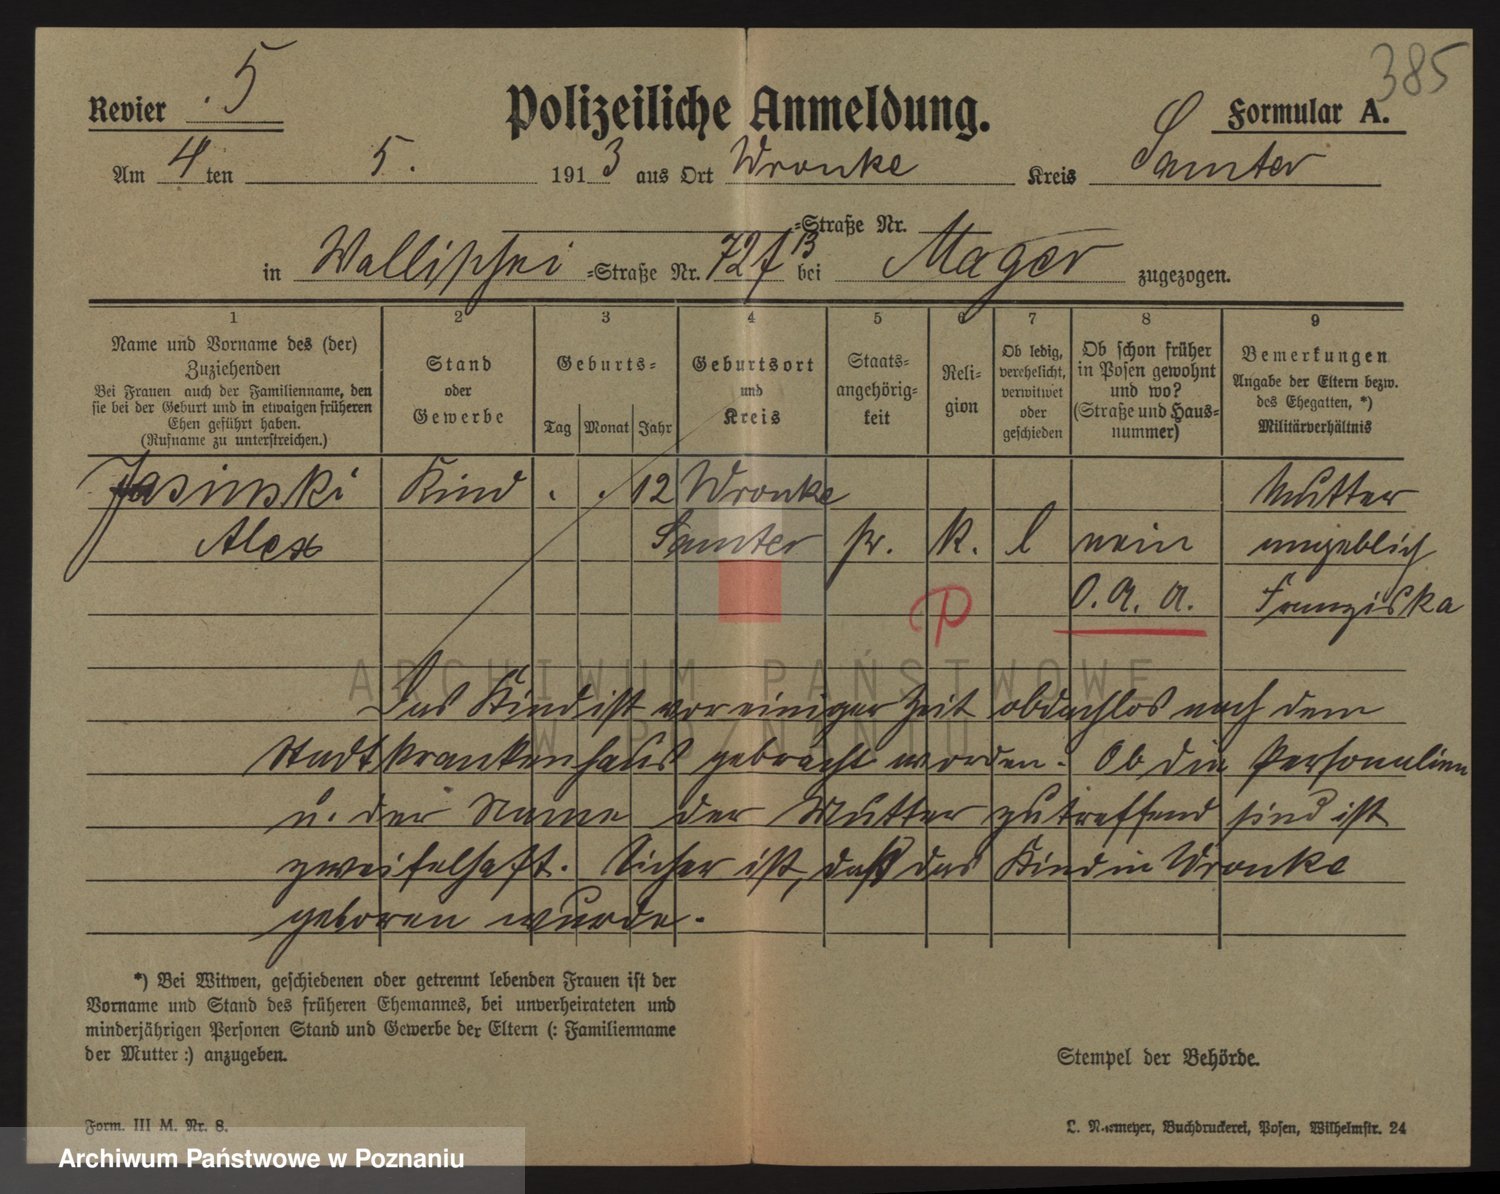 385
Revier 5
Polizeiliche Anmeldung.
Formular A.
Am 4 ten 5. 1913 aus Ort Wronke Kreis Samter
=Straße Nr.
in Wallischei =Straße Nr. 72/73 bei Mager zugezogen.
1 2 3 4 5 6 7 8 9
Name und Vorname des (der)
Zuziehenden
Bei Frauen auch der Familienname, den
sie bei der Geburt und in etwaigen früheren
Ehen geführt haben.
(Rufname zu unterstreichen.)
Stand
oder
Gewerbe
Geburts=
Tag Monat Jahr
Geburtsort
und
Kreis
Staats-
angehörig-
keit
Reli-
gion
Ob ledig,
verehelicht,
verwitwet
oder
geschieden
Ob schon früher
in Posen gewohnt
und wo?
(Straße und Haus-
nummer)
Bemerkungen
Angabe der Eltern bezw.
des Ehegatten, *)
Militärverhältnis
Jasinski Kind . . 12 Wronke Mutter
Alex Samter pr. k. l nein angeblich
P O. A. A. Franziska
Das Kind ist vor einiger Zeit obdachlos nach dem
Stadtkrankenhaus gebracht worden. Ob die Personalien
u. der Name der Mutter zutreffend sind ist
zweifelhaft. Sicher ist, daß das Kind in Wronke
geboren wurde.
*) Bei Witwen, geschiedenen oder getrennt lebenden Frauen ist der
Vorname und Stand des früheren Ehemannes, bei unverheirateten und
minderjährigen Personen Stand und Gewerbe der Eltern (: Familienname
der Mutter :) anzugeben.
Stempel der Behörde.
Form. III M. Nr. 8.
L. Buchdruckerei, Posen, Wilhelmstr. 24
ARCHIWUM PAŃSTWOWE
W POZNANIU
Archiwum Państwowe w Poznaniu